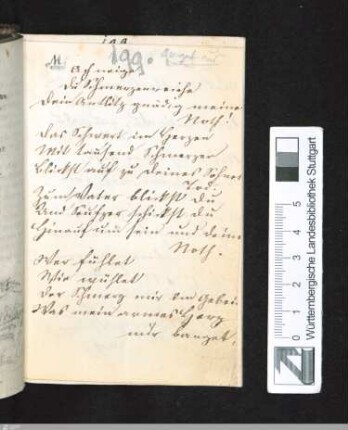 199.
Ach neige
Du Schmerzenreiche
Dein Antlitz gnädig meiner
Noth!
Das Schwert im Herzen
Mit tausend Schmerzen
Blickst auf zu deines Sohnes
Tod
Zum Vater blickst Du
Und Seufzer schickst du
Hinauf um sein und deine
Noth.
Wer fühlet
Wie wühlet
Der Schmerz mir im Gebein
Was mein armes Herz
mir banget,
0 1 2 3 4 5
Württembergische Landesbibliothek Stuttgart